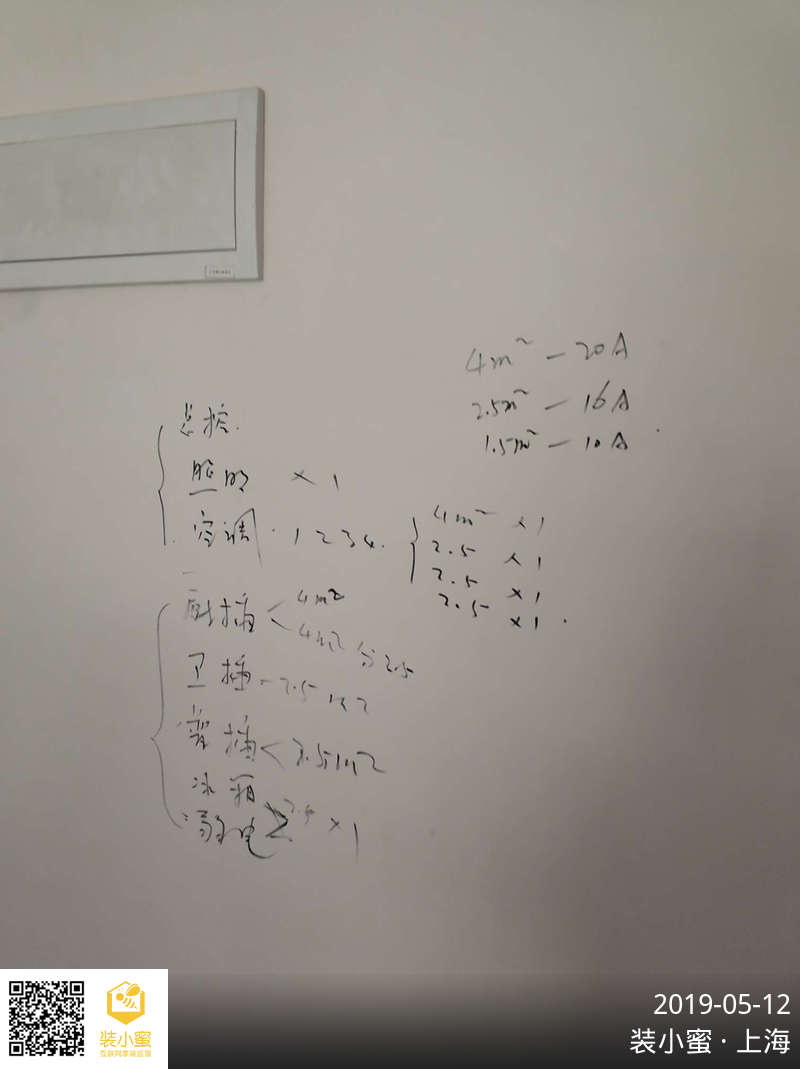 4m² — 20A
2.5m² — 16A
1.5m² — 10A
总控.
照明 ×1
空调·1234. 4m² ×1
2.5 ×1
2.5 ×1
2.5 ×1.
厨插 4m²
4m² 分2.5
卫插-2.5m2
普插<2.5m2
冰箱
弱电 2.5 ×1
装小蜜
互联网家装监理
2019-05-12
装小蜜·上海